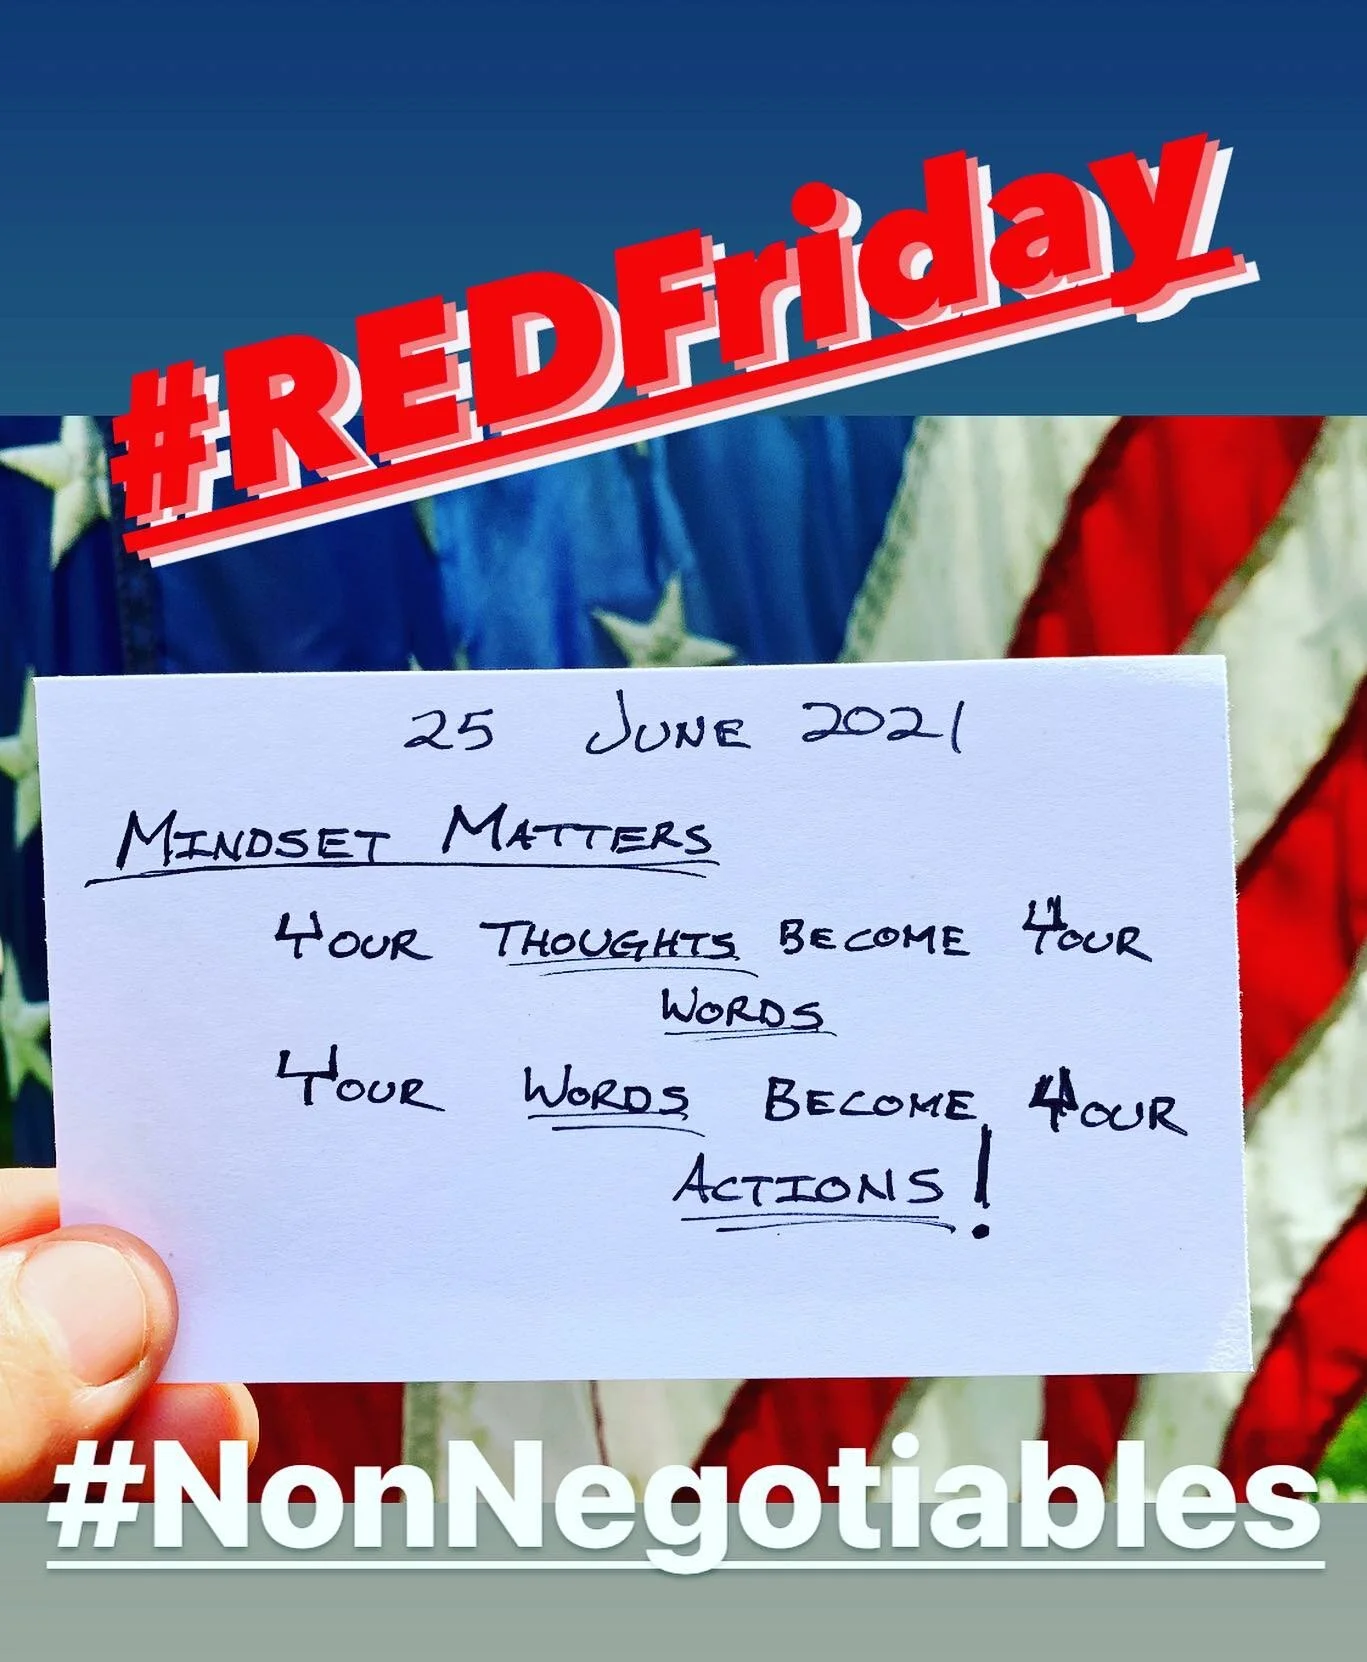 #REDFriday
25 June 2021
MINDSET MATTERS
YOUR THOUGHTS BECOME YOUR
WORDS
YOUR WORDS BECOME YOUR
ACTIONS!
#NonNegotiables